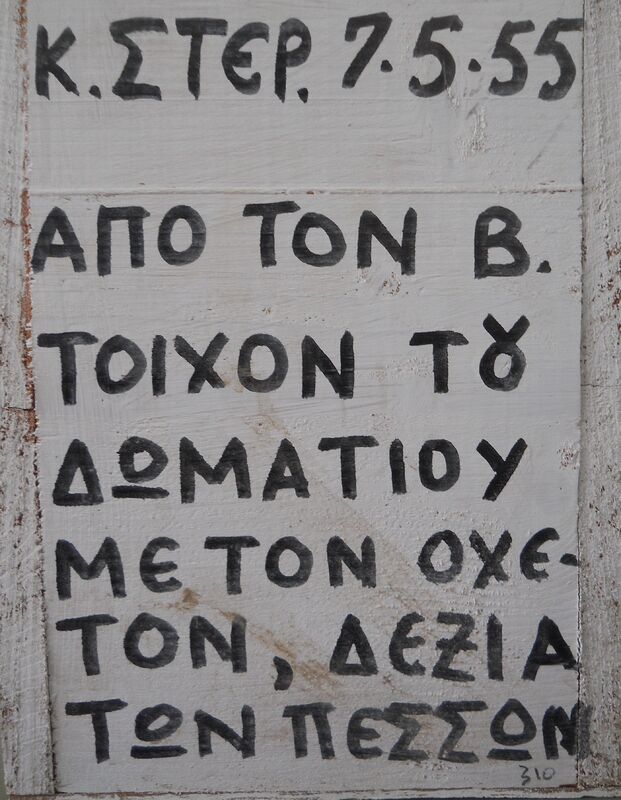 Κ. ΣΤΕΡ. 7.5.55
ΑΠΟ ΤΟΝ Β.
ΤΟΙΧΟΝ ΤȢ
ΔΩΜΑΤΙΟΥ
ΜΕ ΤΟΝ ΟΧΕ-
ΤΟΝ, ΔΕΞΙΑ
ΤΩΝ ΠΕΣΣΩΝ
310